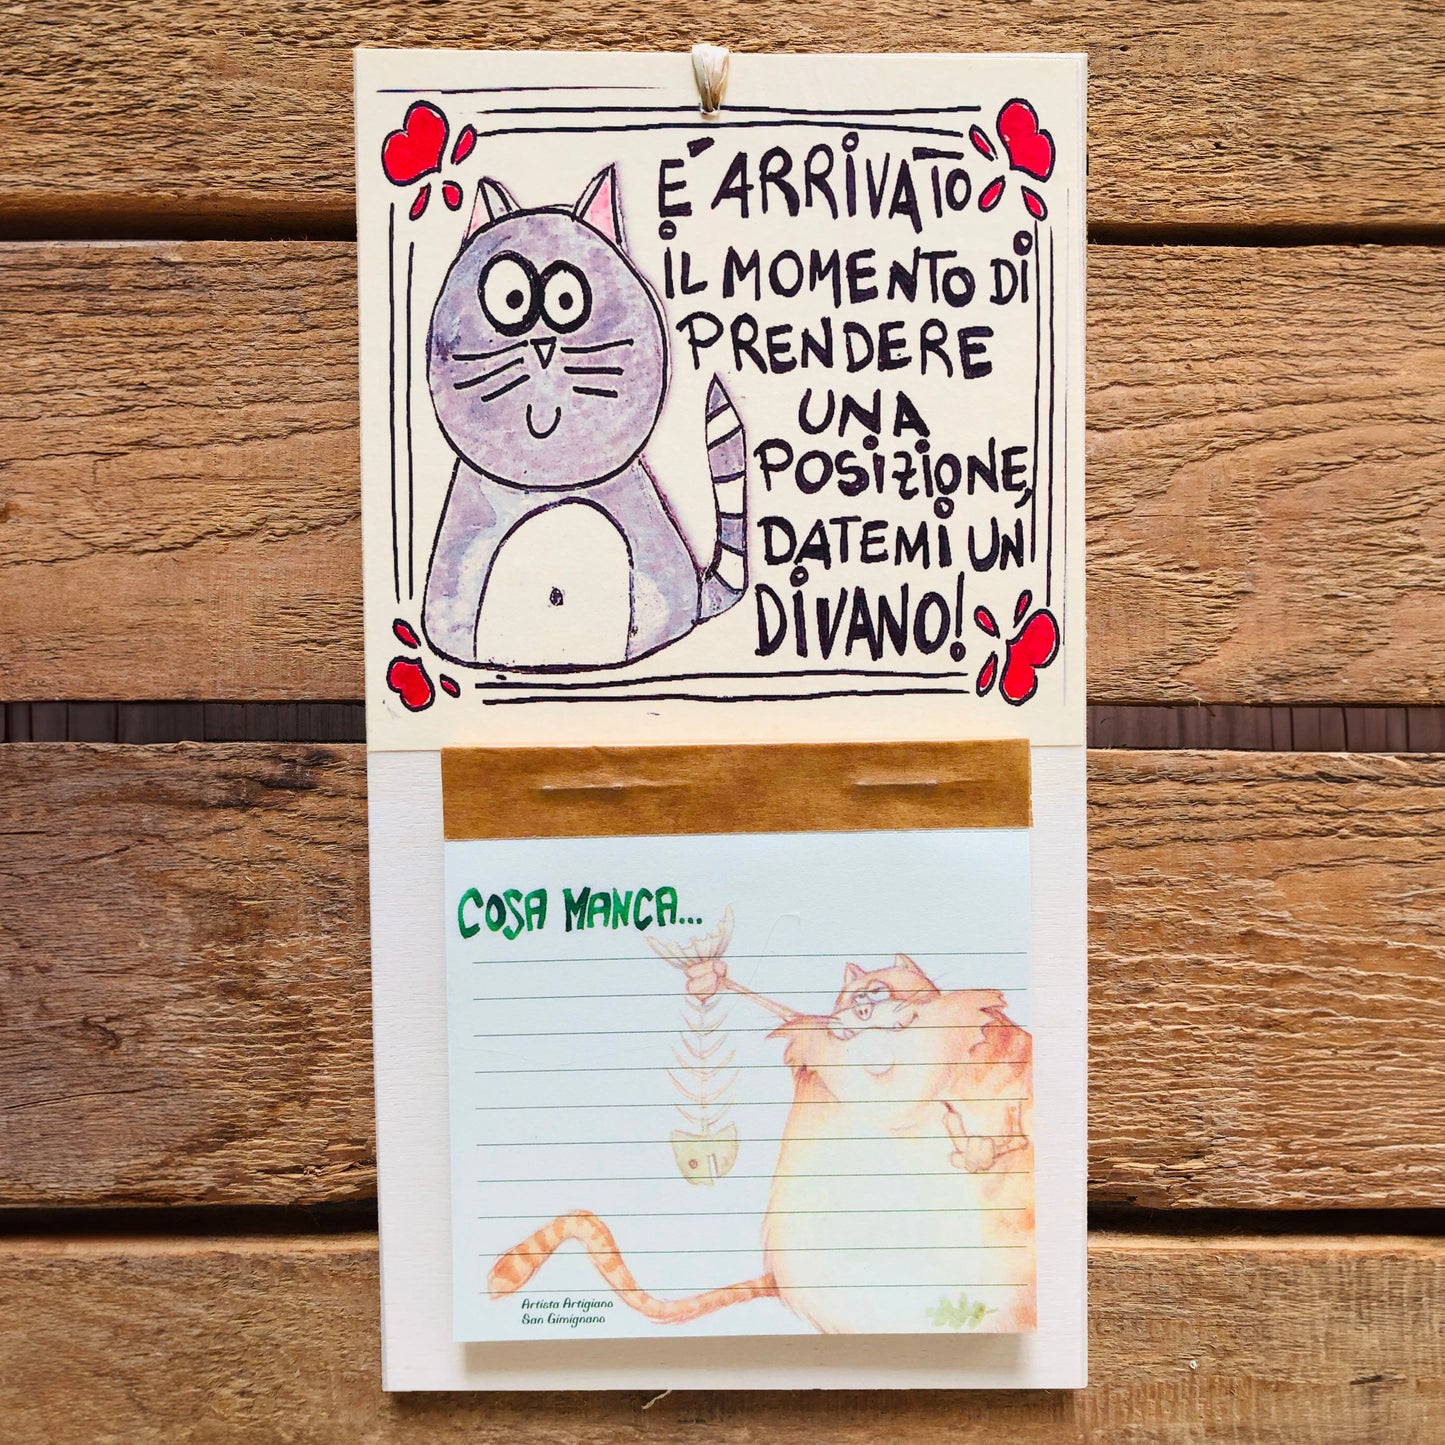 E' ARRIVATO
IL MOMENTO DI
PRENDERE
UNA
POSIZIONE,
DATEMI UN
DIVANO!
COSA MANCA...
Artista Artigiano
San Gimignano